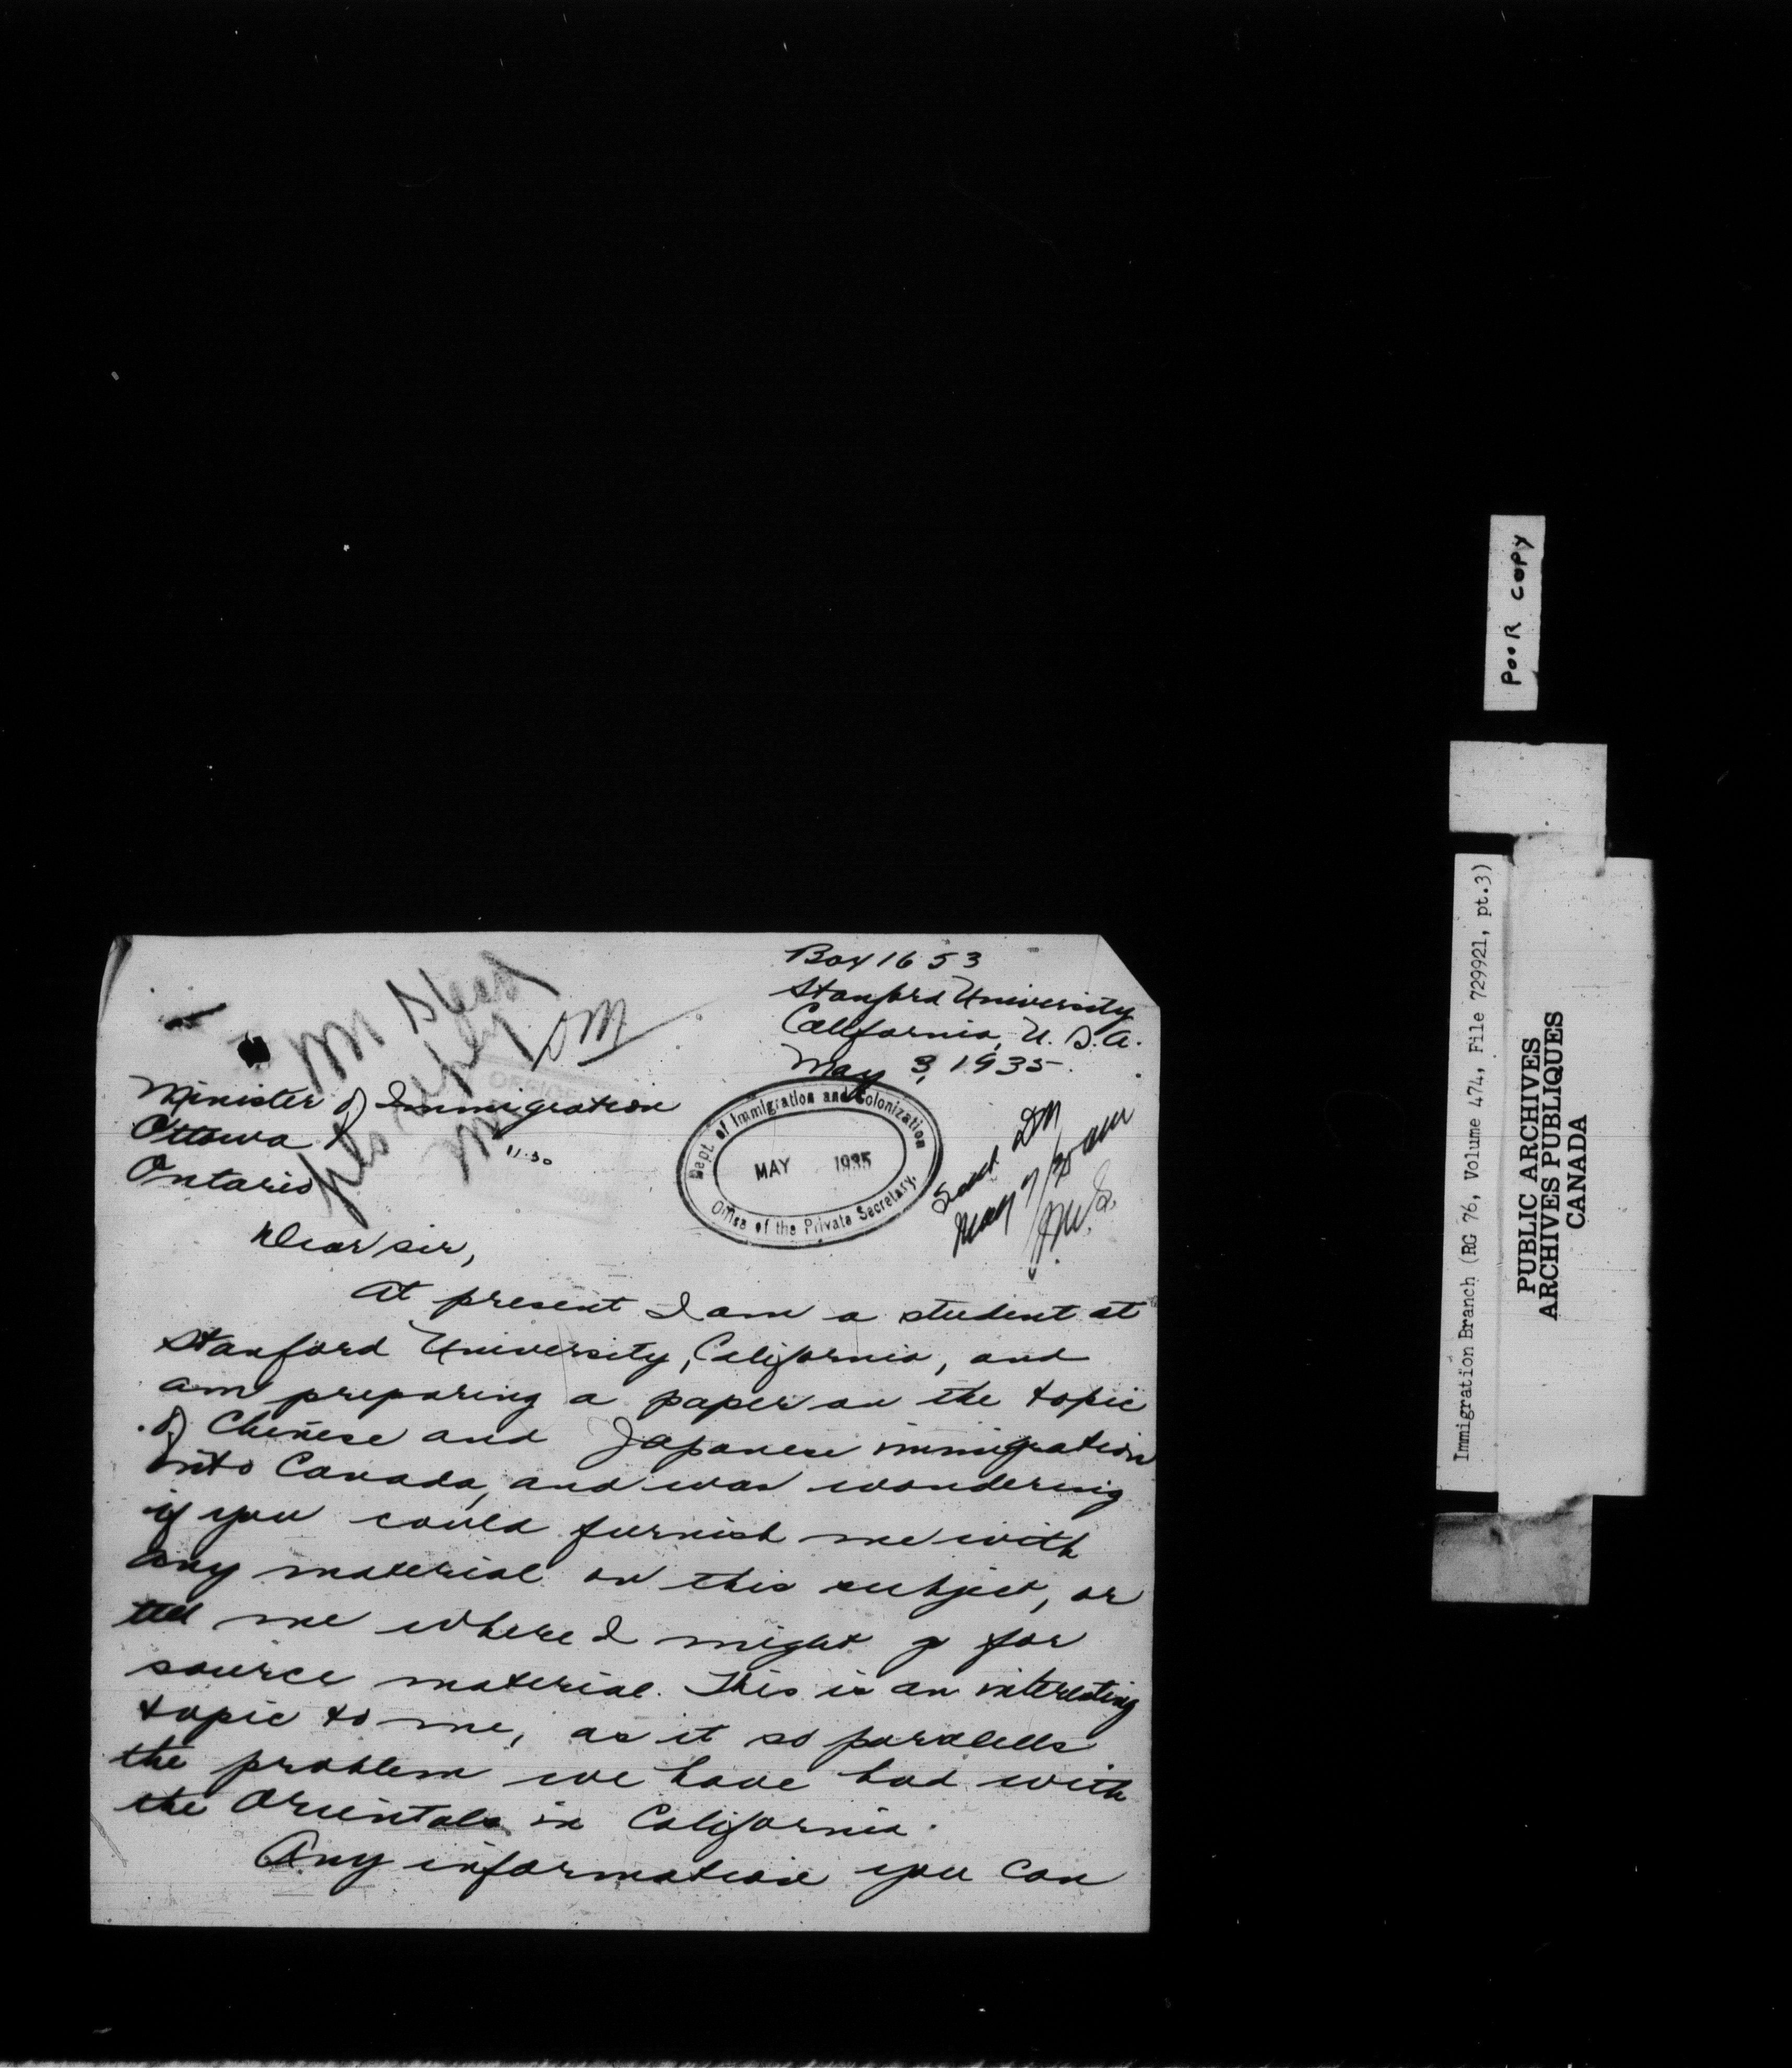 Box 1653
Stanford University
California, U.S.A.
May 3, 1935.
Minister of Immigration
Ottawa
Ontario
pls reply
DM
11.30
Dept. of Immigration and Colonization
MAY 1935
Office of the Private Secretary.
DM
May 7/35
Dear sir,
At present I am a student at
Stanford University, California, and
am preparing a paper on the topic
of Chinese and Japanese immigration
into Canada, and was wondering
if you could furnish me with
any material on this subject, or
tell me where I might go for
source material. This is an interesting
topic to me, as it so paralells
the problem we have had with
the Orientals in California.
Any information you can
POOR COPY
Immigration Branch (RG 76, Volume 474, File 729921, pt.3)
PUBLIC ARCHIVES
ARCHIVES PUBLIQUES
CANADA